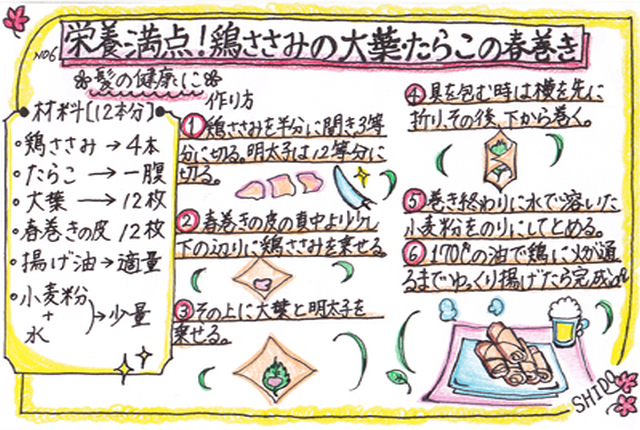 NO6 栄養満点!鶏ささみの大葉・たらこの春巻き
髪の健康に
材料[12本分]
・鶏ささみ→4本
・たらこ→一腹
・大葉→12枚
・春巻きの皮 12枚
・揚げ油→適量
・小麦粉
+
水
→少量
作り方
①鶏ささみを半分に開き3等
分に切る。明太子は12等分に
切る。
②春巻きの皮の真中より少し
下の辺りに鶏ささみを乗せる。
③その上に大葉と明太子を
乗せる。
④具を包む時は横を先に
折り、その後、下から巻く。
⑤巻き終わりに水で溶いた
小麦粉をのりにしてとめる。
⑥170℃の油で鶏に火が通
るまでゆっくり揚げたら完成
SHIDO